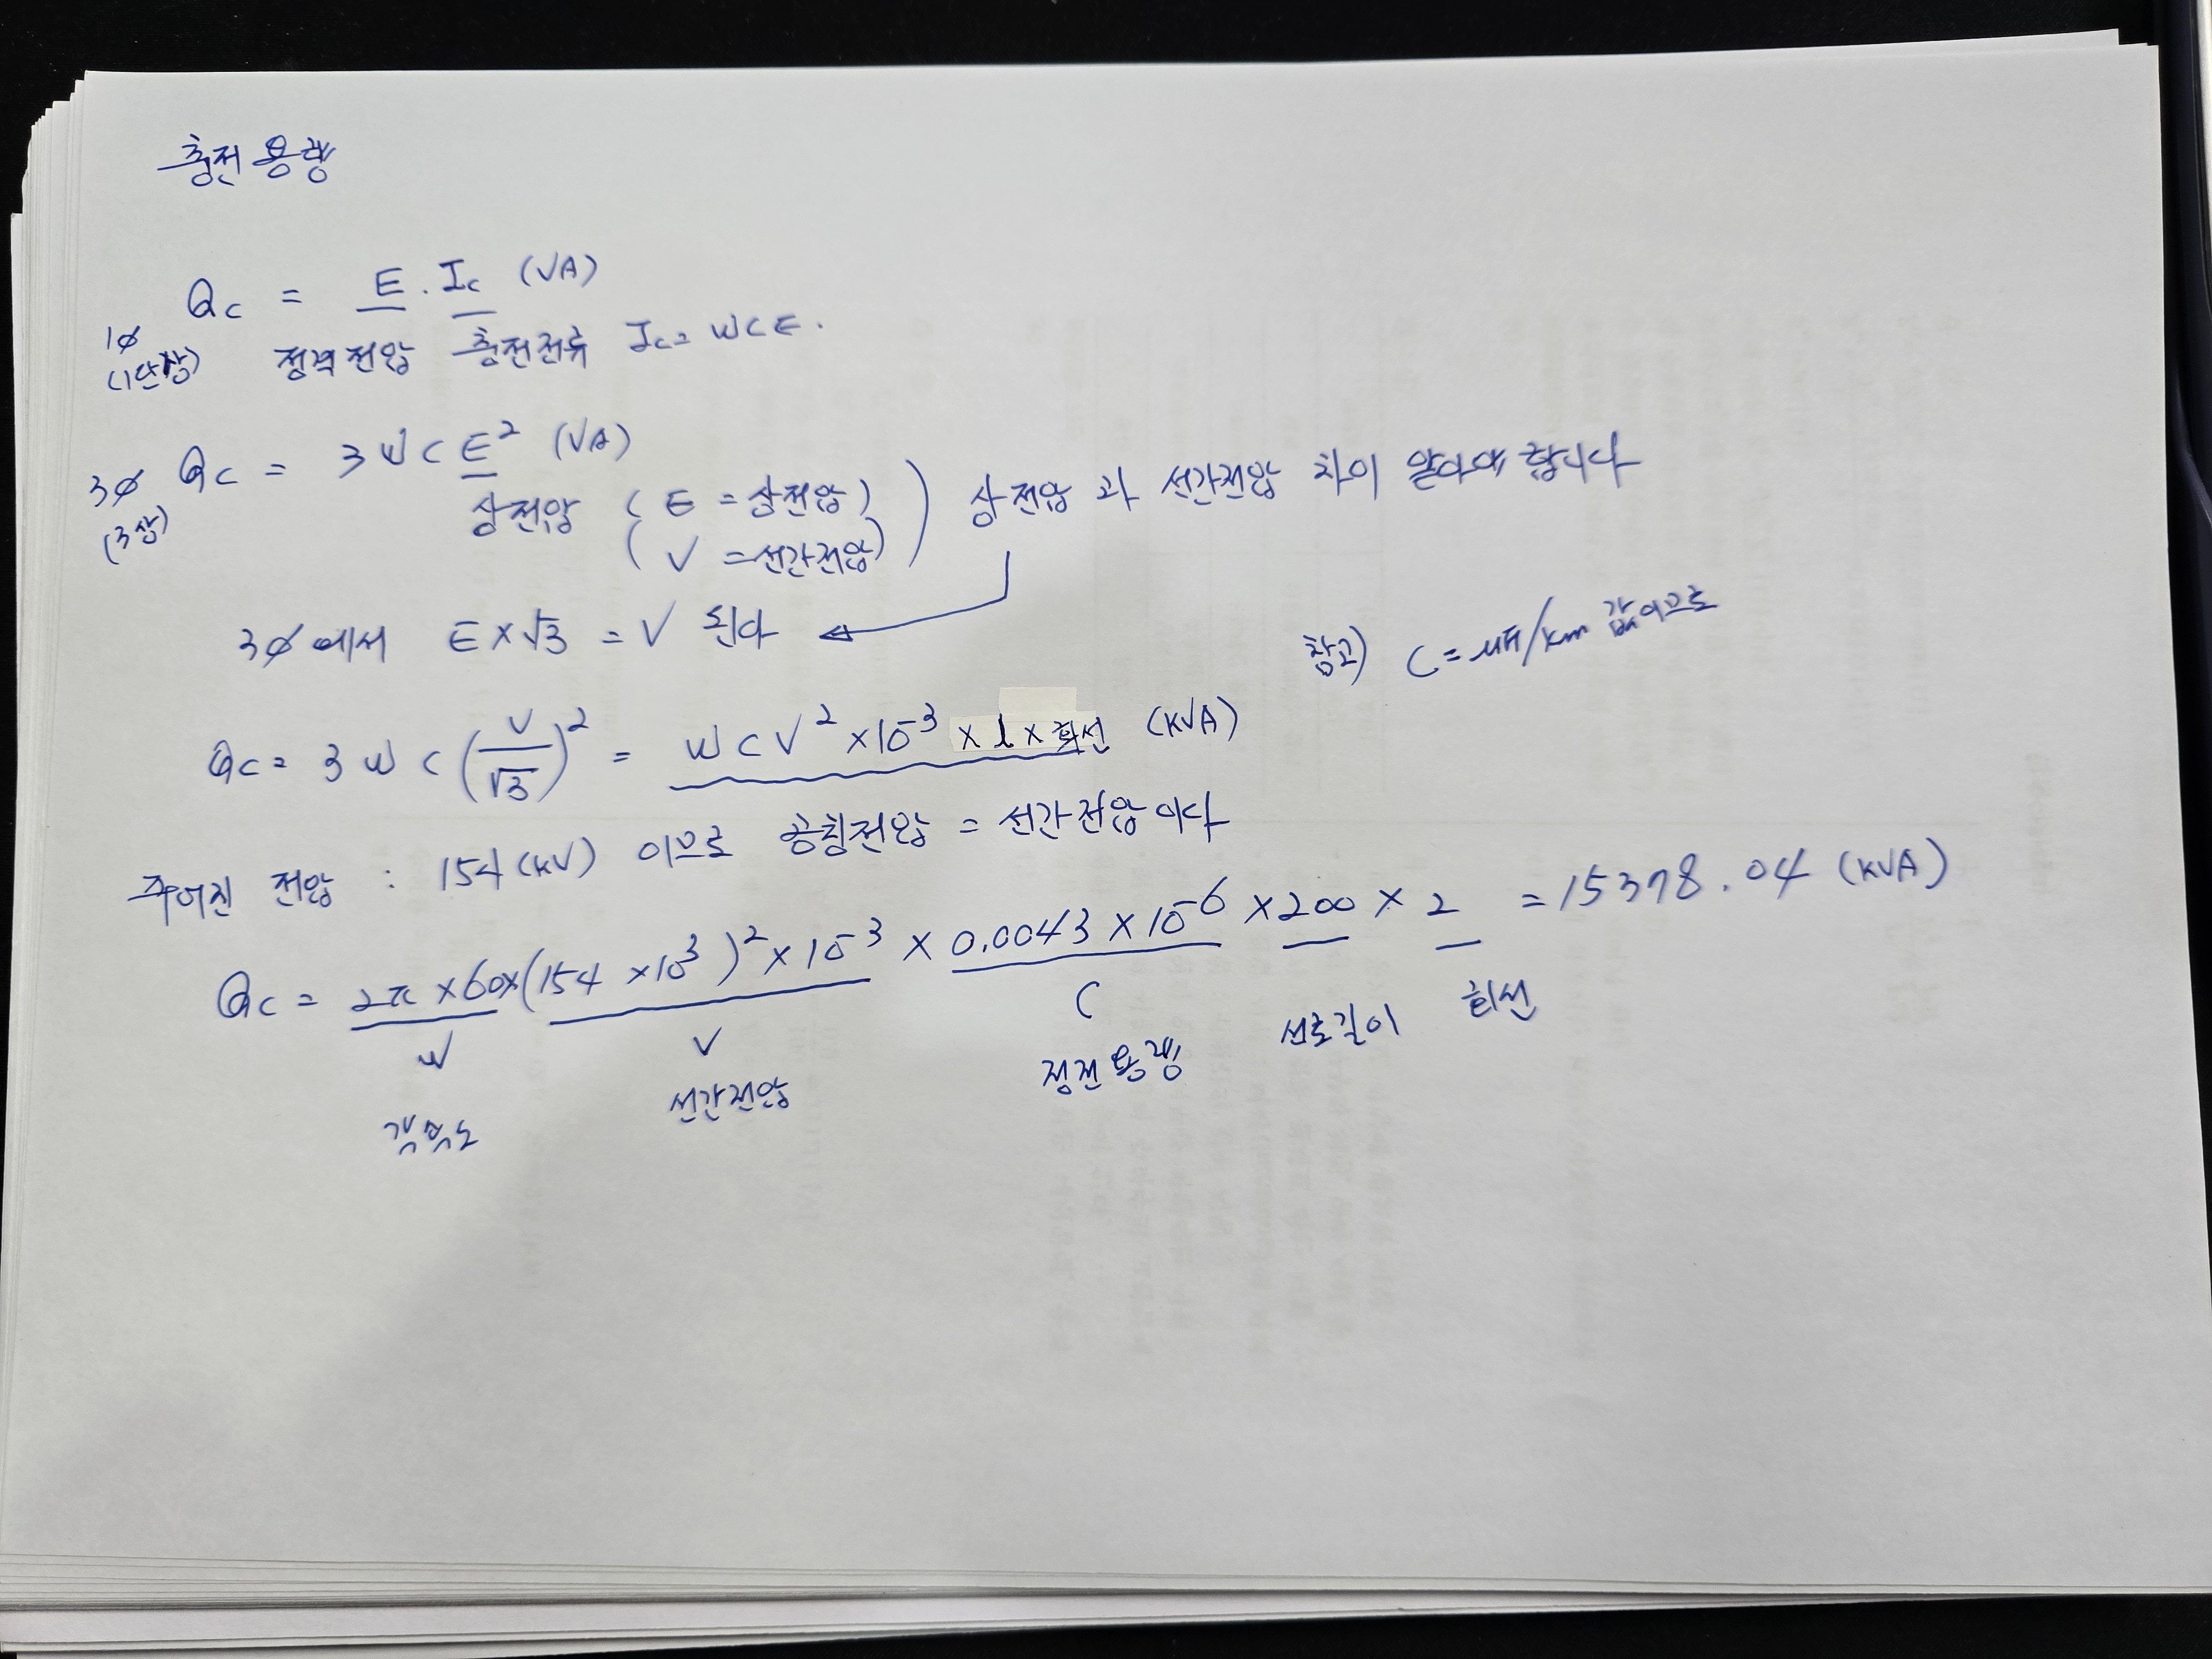 충전용량
Qc = E · Ic (VA)
1ø (1단상) 정격전압 충전전류 Ic = WCE.
3ø (3상) Qc = 3WCE² (VA)
상전압 (E = 상전압) (V = 선간전압) 상전압과 선간전압 차이 알아야 합니다
3ø에서 E×√3 = V 된다
참고) C = μF/km 값이므로
Qc = 3WC(V/√3)² = WCV²×10⁻³ × l × 회선 (KVA)
주어진 전압 : 154(kV) 이므로 공칭전압 = 선간전압이다
Qc = 2π×60×(154×10³)²×10⁻³ × 0.0043×10⁻⁶ ×200 × 2 = 15378.04 (KVA)
W V C 선로길이 회선
각속도 선간전압 정전용량